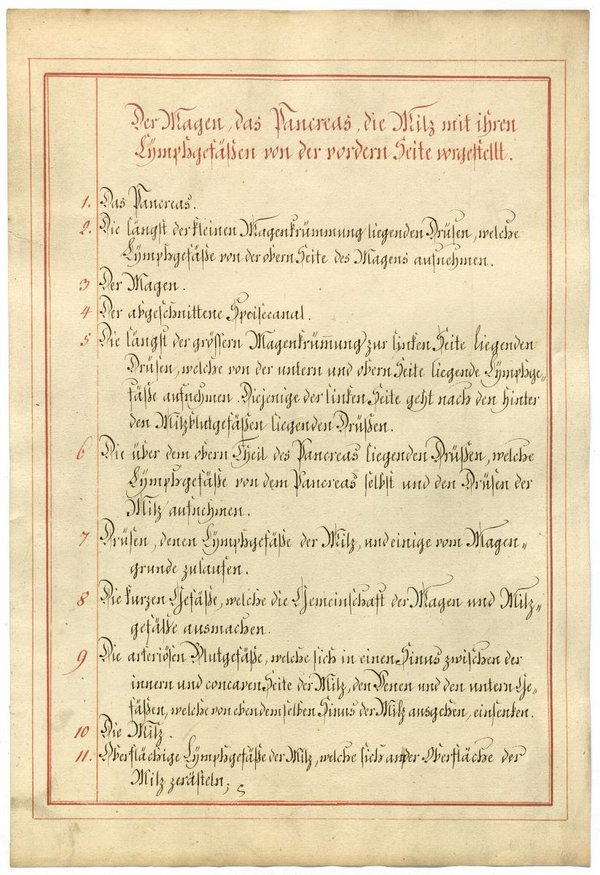 Der Magen, das Pancreas, die Milz mit ihren
Lÿmphgefäßen von der vordern Seite vorgestellt.
1. Das Pancreas.
2. Die längst der kleinen Magenkrümmung liegenden Drüsen, welche
Lÿmphgefäße von der obern Seite des Magens aufnehmen.
3 Der Magen.
4 Der abgeschnittene Speisecanal.
5 Die längst der grössern Magenkrüm̅ung zur linken Seite liegenden
Drüsen, welche von der untern und obern Seite liegende Lÿmphge„
fäße aufnehmen. Diejenige der linken Seite geht nach den hinter
den Milzblutgefäßen liegenden Drüßen.
6 Die über dem obern Theil des Pancreas liegenden Drüßen, welche
Lÿmphgefäße von dem Pancreas selbst und den Drüsen der
Milz aufnehmen.
7 Drüsen, denen Lÿmphgefäße der Milz, und einige vom Magen„
grunde zulaufen.
8 Die kurzen Gefäße, welche die Gemeinschaft der Magen und Milz„
gefäße ausmachen.
9 Die arteriösen Blutgefäße, welche sich in einen Sinus zwischen der
innern und concaven Seite der Milz, den Venen und den untern Ge„
fäßen, welche von eben demselben Sinus der Milz ausgehen, einsenken.
10 Die Milz.
11. Oberflächige Lÿmphgefäße der Milz, welche sich an der Oberfläche der
Milz zerästeln;